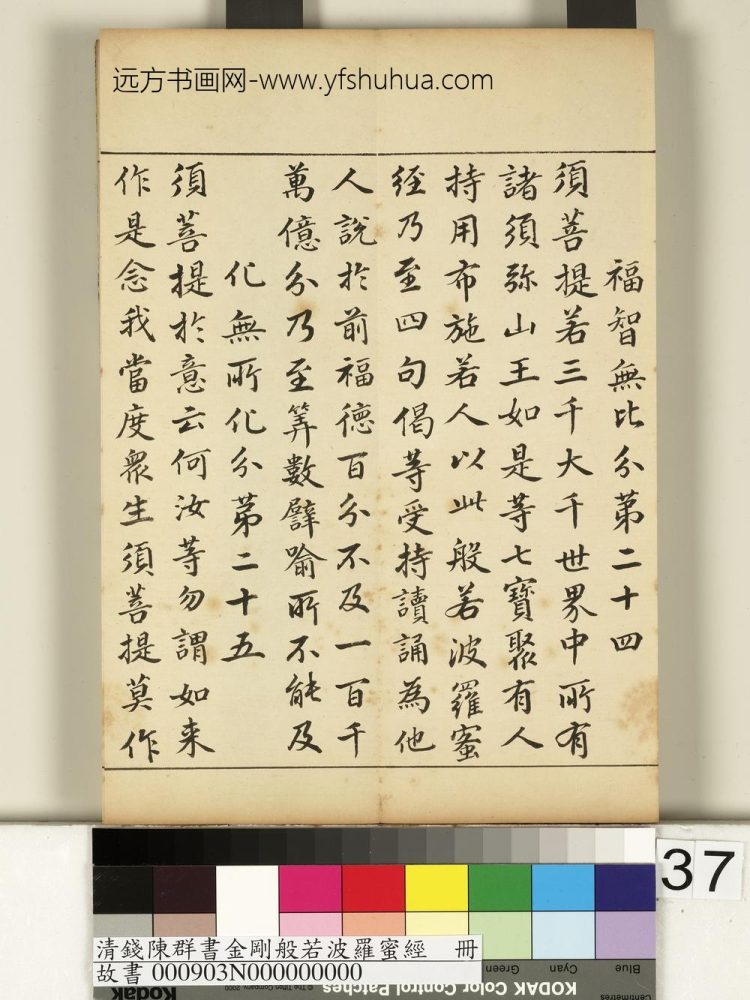 远方书画网-www.yfshuhua.com
福智無比分第二十四
須菩提若三千大千世界中所有
諸須弥山王如是等七寶聚有人
持用布施若人以此般若波羅蜜
經乃至四句偈等受持讀誦為他
人說於前福德百分不及一百千
萬億分乃至筭數譬喻所不能及
化無所化分第二十五
須菩提於意云何汝等勿謂如来
作是念我當度衆生須菩提莫作
37
清錢陳群書金剛般若波羅蜜經 冊
故書 000903N000000000
Blue
Cyan
Green
Centimetres
KODAK Color Control Patches
© The Tiffen Company, 2000
Kodak